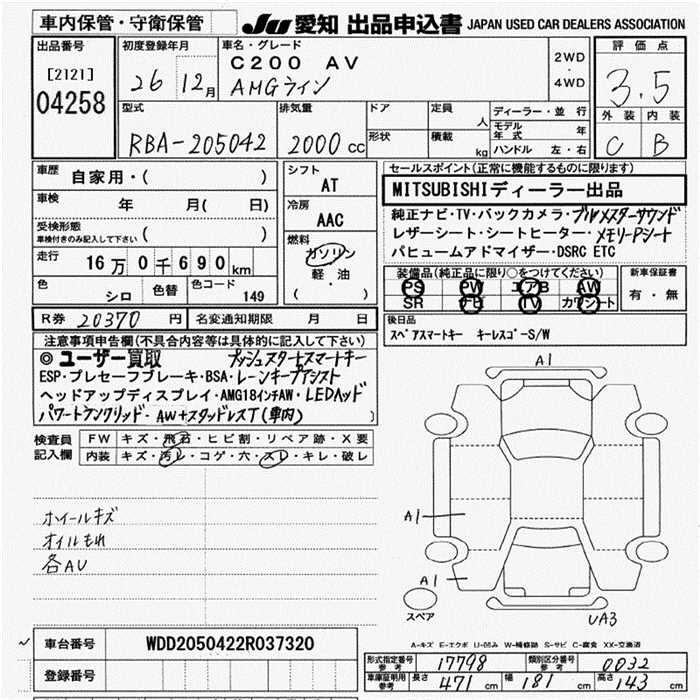 車内保管・守衛保管
JU 愛知 出品申込書 JAPAN USED CAR DEALERS ASSOCIATION
出品番号
[2121]
04258
初度登録年月
26 12月
車名・グレード
C200 AV
AMGライン
2WD
・
4WD
評価点
3.5
外装 内装
C B
型式
RBA-205042
排気量
2000 cc
ドア
形状
定員
人
積載
kg
ディーラー・並行
モデル年式 年
ハンドル 左・右
車歴
自家用・( )
車検
年 月( 日)
受検形態
車検付きのみ記入して下さい ( )
走行
16万0千690km
色
シロ
色替
色コード
149
R券 20370 円
名変通知期限 月 日
シフト
AT
冷房
AAC
燃料
ガソリン
軽・油
( )
セールスポイント(正常に機能するものに限ります)
MITSUBISHIディーラー出品
純正ナビ・TV・バックカメラ・ブルメスターサウンド
レザーシート・シートヒーター・メモリーPシート
パヒュームアドマイザー・DSRC ETC
装備品(純正品に限り○をつけてください)
PS PW エアB AW
SR ナビ TV カワシート
新車保証書
有・無
後日品
スペアスマートキー キーレスゴーS/W
注意事項申告欄(不具合内容等は具体的に記入して下さい)
◎ユーザー買取 プッシュスタートスマートキー
ESP・プレセーフブレーキ・BSA・レーンキープアシスト
ヘッドアップディスプレイ・AMG18インチAW・LEDヘッド
パワートランクリッド・AW+スタッドレスT(車内)
検査員
記入欄
FW キズ・飛石・ヒビ割・リペア跡・X要
内装 キズ・汚レ・コゲ・穴・スレ・キレ・破レ
ホイールキズ
オイルもれ
各AU
A1
A1
A1
スペア
UA3
A-キズ E-エクボ U-凹み W-補修跡 S-サビ C-腐食 XX-交換済
車台番号
WDD2050422R037320
登録番号
形式指定番号 参考 17798
類別区分番号 参考 0032
車庫証明用 参考 長さ 471 cm 幅 181 cm 高さ 143 cm